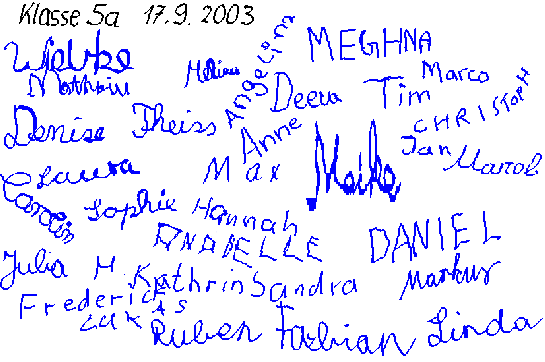 Klasse 5a 17.9.2003
Wiebke
MEGHNA
Angelina
Marco
Deera Tim
CHRISTOPH
Denise Theiss
Anne
Jan Marcel
Laura
Max
Maike
Carolin
Sophie Hannah
ANABELLE
DANIEL
Julia H.
Kathrin Sandra
Markus
Frederic
LUKAS
Ruben Fabian Linda